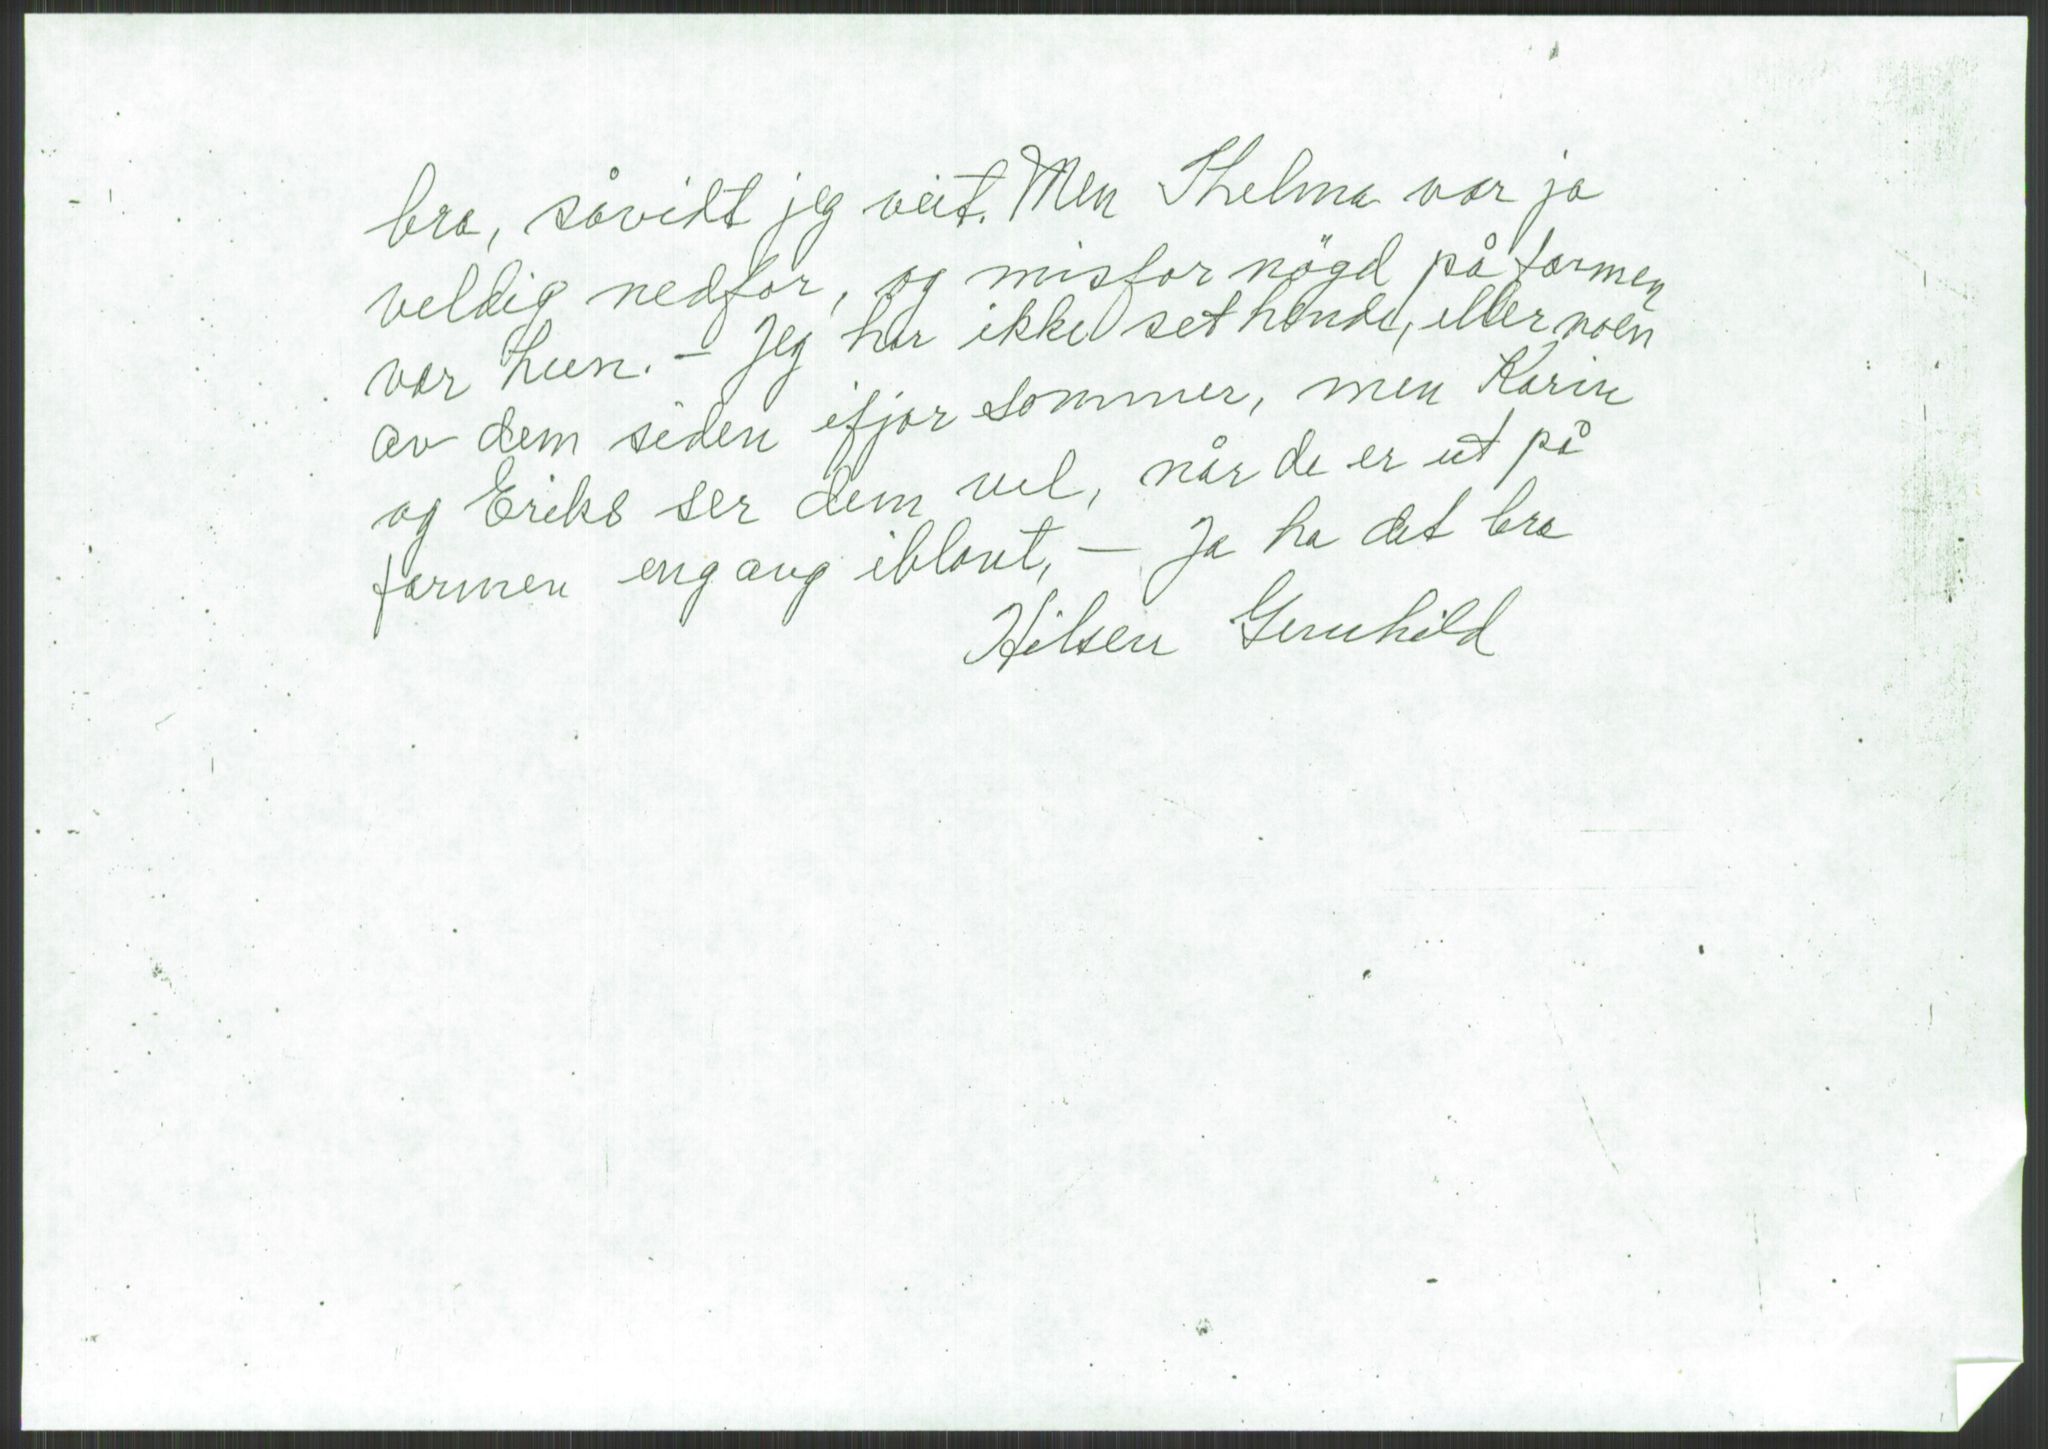 bra, såvidt jeg veit. Men Thelma var jo
veldig nedfor, og misfornögd på farmen
var hun. – Jeg har ikke set hende, eller noen
av dem siden ifjor sommer, men Karin
og Eriks ser dem vel, når de er ut på
farmen engang iblant, – Ja ha det bra
Hilsen Gunhild